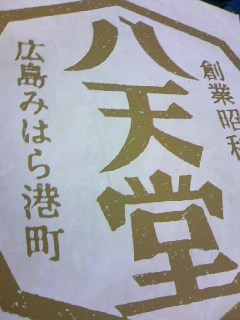 創業昭和
八天堂
広島みはら港町